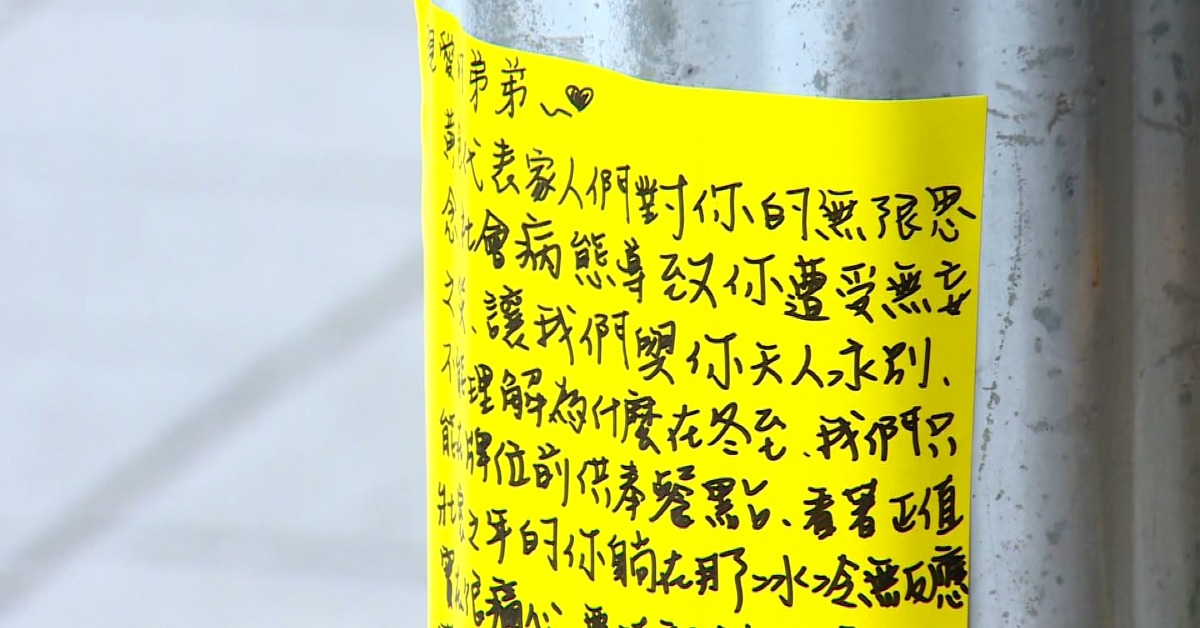 親愛的弟弟~♥
黃色代表家人們對你的無限思
念社會病態導致你遭受無妄
之災、讓我們與你天人永別、
不能理解為什麼在冬至、我們只
能在牌位前供奉餐點、看著正值
壯壞之年的你躺在那冰冷無反應
實在很痛心